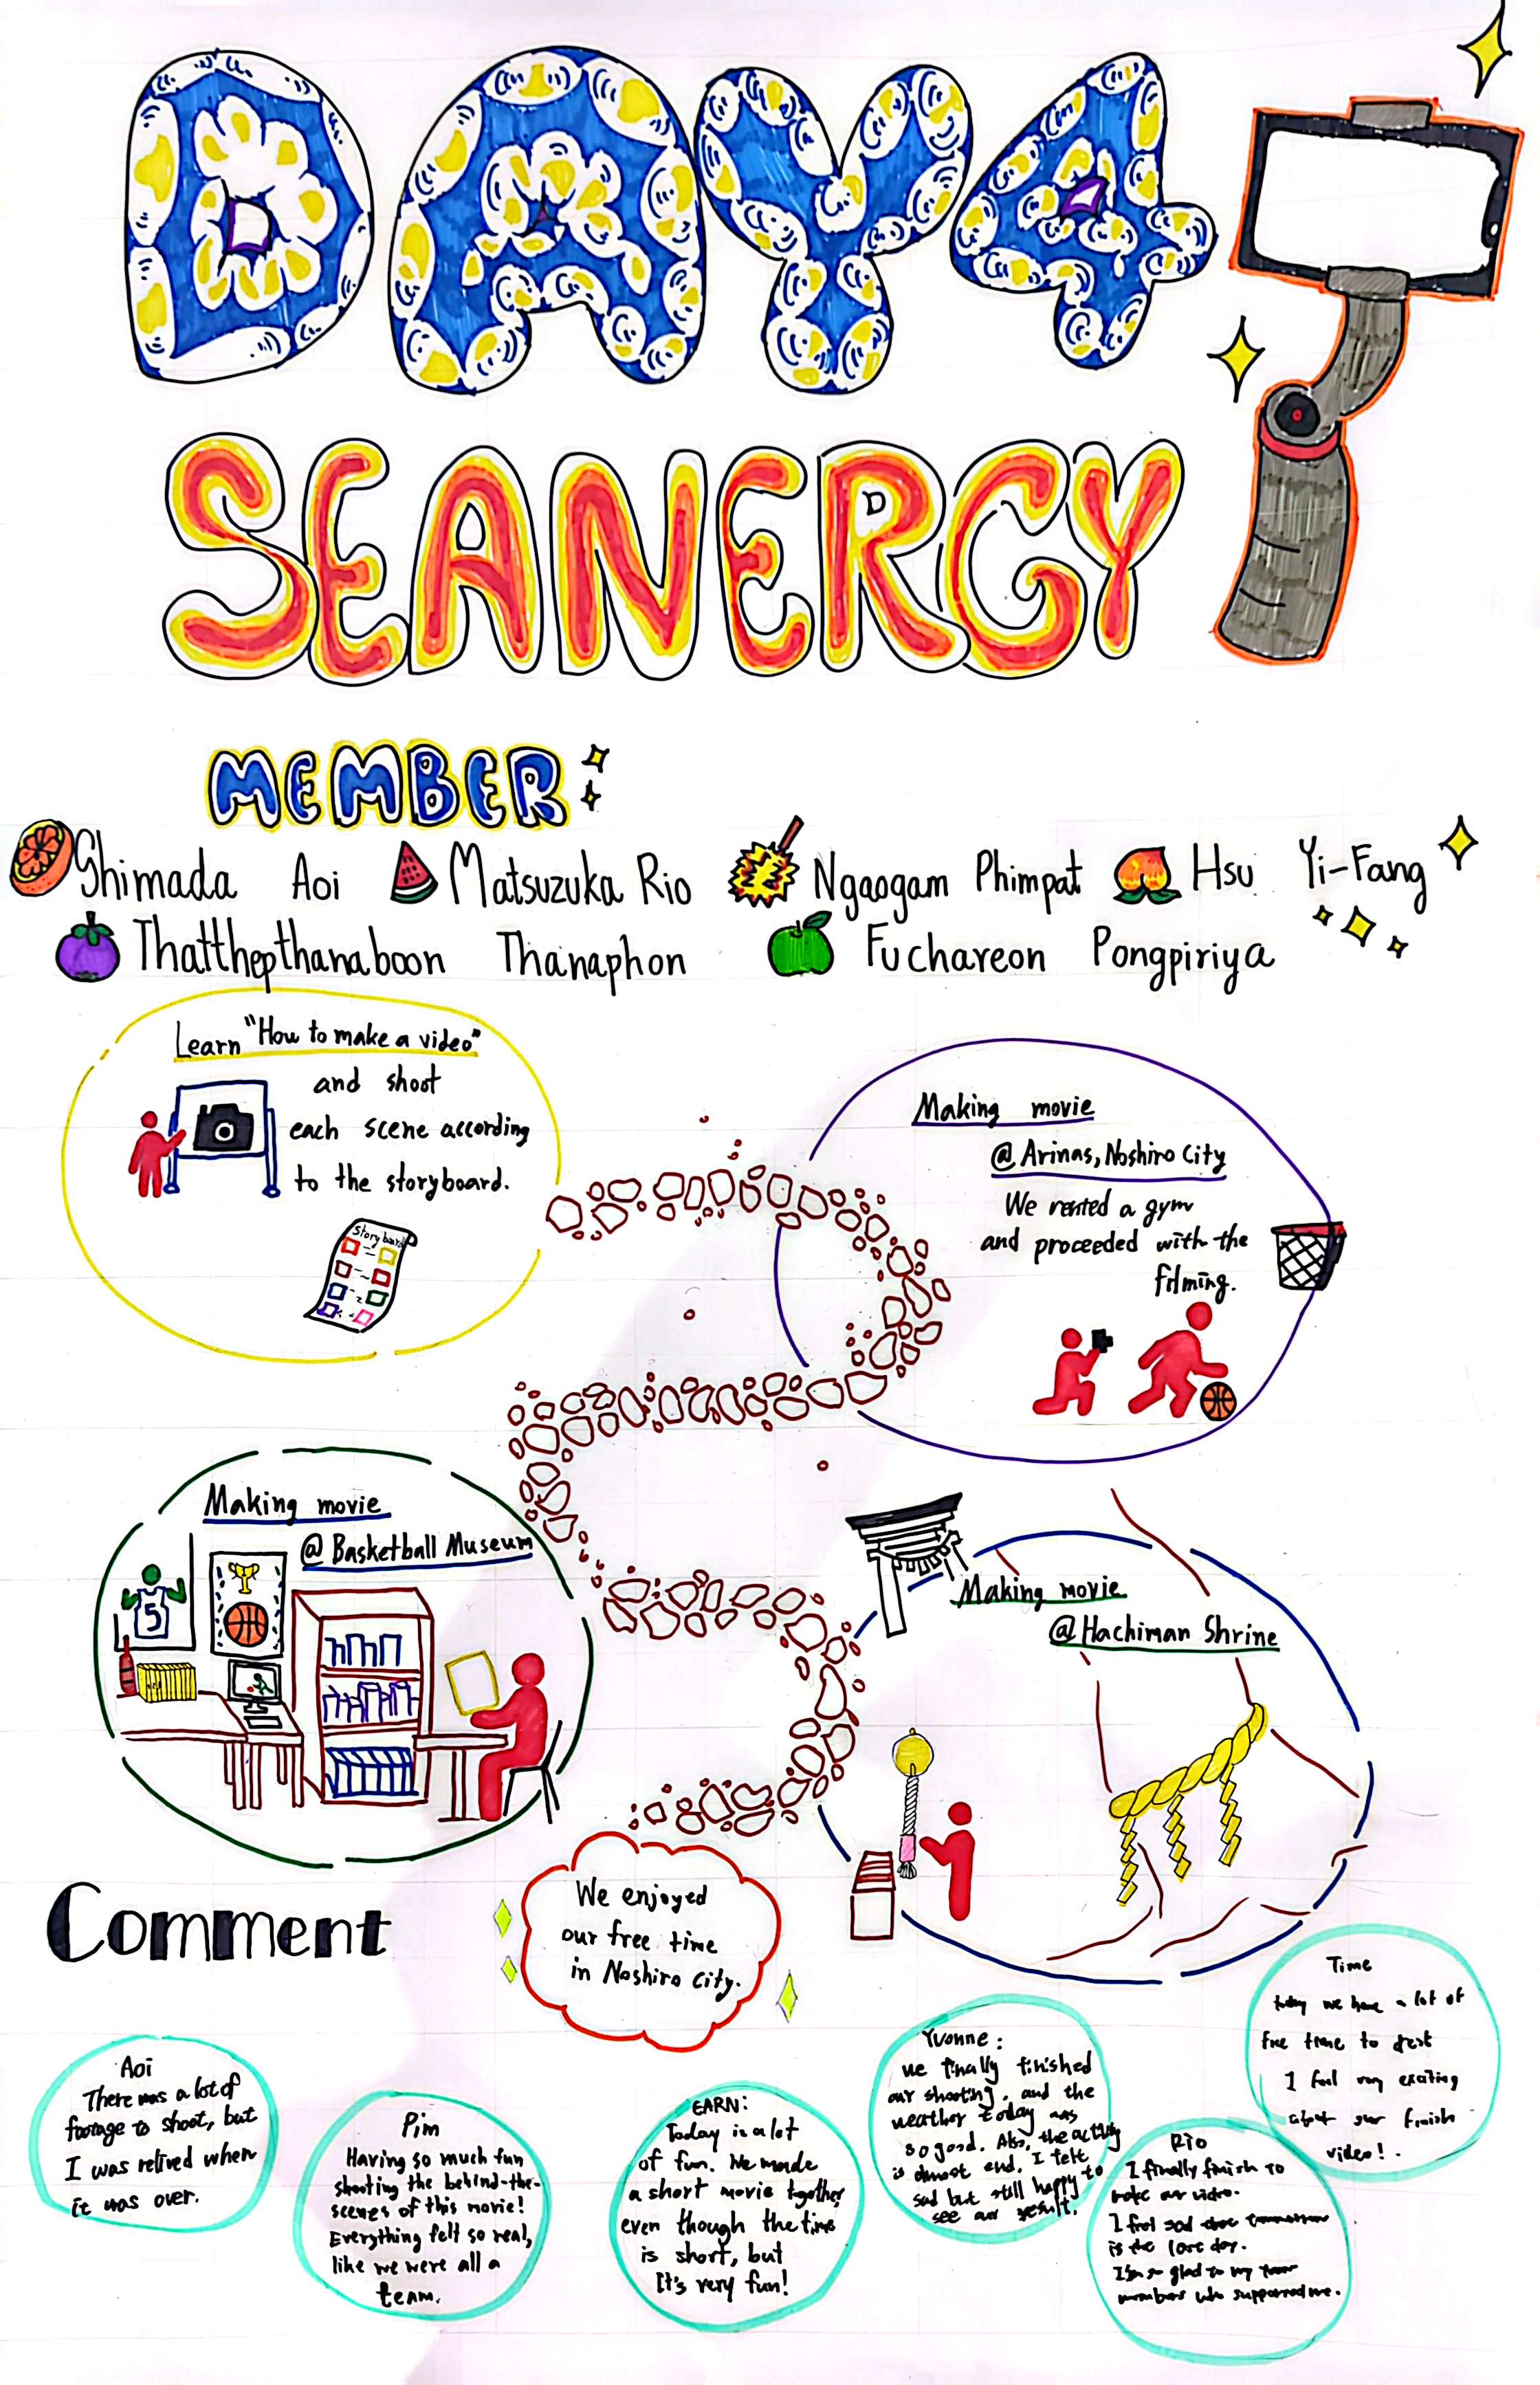 DAY4
SEANERGY
MEMBER
Shimada Aoi Matsuzuka Rio Ngaogam Phimpat Hsu Yi-Fang
Thatthepthanaboon Thanaphon Fuchareon Pongpiriya
Learn "How to make a video"
and shoot
each scene according
to the storyboard.
Story board
Making movie
@ Arinas, Noshiro City
We rented a gym
and proceeded with the
filming.
Making movie
@ Basketball Museum
5
Making movie
@ Hachiman Shrine
We enjoyed
our free time
in Noshiro City.
Comment
Aoi
There was a lot of
footage to shoot, but
I was relived when
it was over.
Pim
Having so much fun
shooting the behind-the-
scenes of this movie!
Everything felt so real,
like we were all a
team.
EARN:
Today is a lot
of fun. We made
a short movie together
even though the time
is short, but
It's very fun!
Yvonne:
we finally finished
our shooting, and the
weather today was
so good. Also, the activity
is almost end, I felt
sad but still happy to
see our result.
Rio
I finally finish to
make our video.
I feel sad
is the last day.
I'm so glad to my team
members who supported me.
Time
today we have a lot of
free time to
I feel very exciting
about our finish
video!.